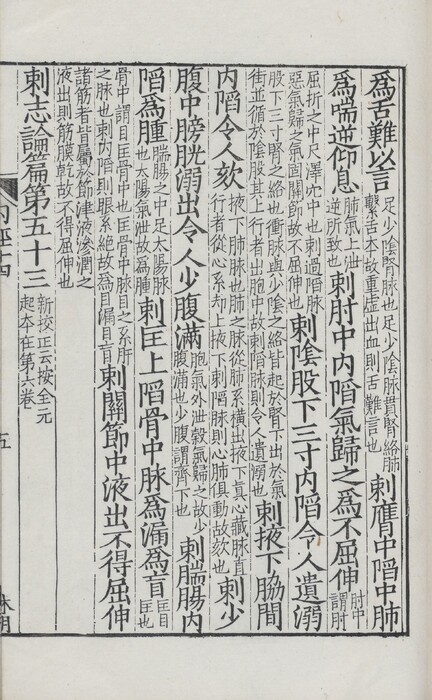 為舌難以言足少陰腎脉也足少陰脉貫腎絡肺繫舌本故重虛出血則舌難言也刺膺中陷中肺
為喘逆仰息肺氣上泄逆所致也刺肘中內陷氣歸之為不屈伸肘中謂肘
屈折之中尺澤穴中也刺過陷脉惡氣歸之氣固關節故不屈伸也刺陰股下三寸內陷令人遺溺
股下三寸腎之絡也衝脉與少陰之絡皆起於腎下出於氣街並循於陰股其上行者出胞中故刺陷脉則令人遺溺也刺掖下脇間
內陷令人欬掖下肺脉也肺之脉從肺系橫出掖下真心藏脉直行者從心系却上掖下刺陷脉則心肺俱動故欬也刺少
腹中膀胱溺出令人少腹滿胞氣外泄穀氣歸之故少腹滿也少腹謂齊下也刺腨腸內
陷為腫腨腸之中足太陽脉也太陽氣泄故為腫刺匡上陷骨中脉為漏為盲匡目匡也
骨中謂目匡骨中也匡骨中脉目之系肝之脉也刺內陷則脹系絕故為目漏目盲刺關節中液出不得屈伸
諸筋者皆屬於節津液滲潤之液出則筋膜乾故不得屈伸也
刺志論篇第五十三新校正云按全元起本在第六卷
五